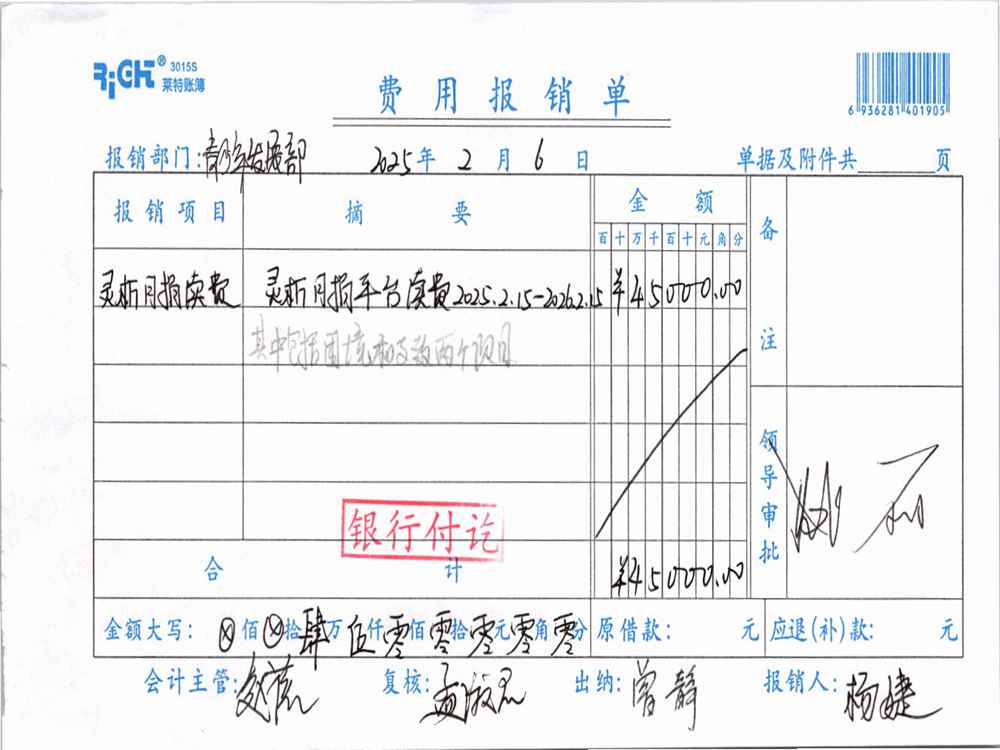 RIGHT® 3015S
莱特账簿
6 936281 401905
费用报销单
报销部门:青少年发展部 2025年2月6日 单据及附件共 页
报销项目 摘要 金额 备注
百十万千百十元角分
灵析月捐续费 灵析月捐平台续费2025.2.15-2026.2.15 ¥45000.00
其中包括困境和 两个项目
领导审批
银行付讫
合计 ¥45000.00
金额大写: ⊗佰⊗拾肆万伍仟零佰零拾零元零角零分 原借款: 元 应退(补)款: 元
会计主管: 复核: 出纳:曾静 报销人:杨婕